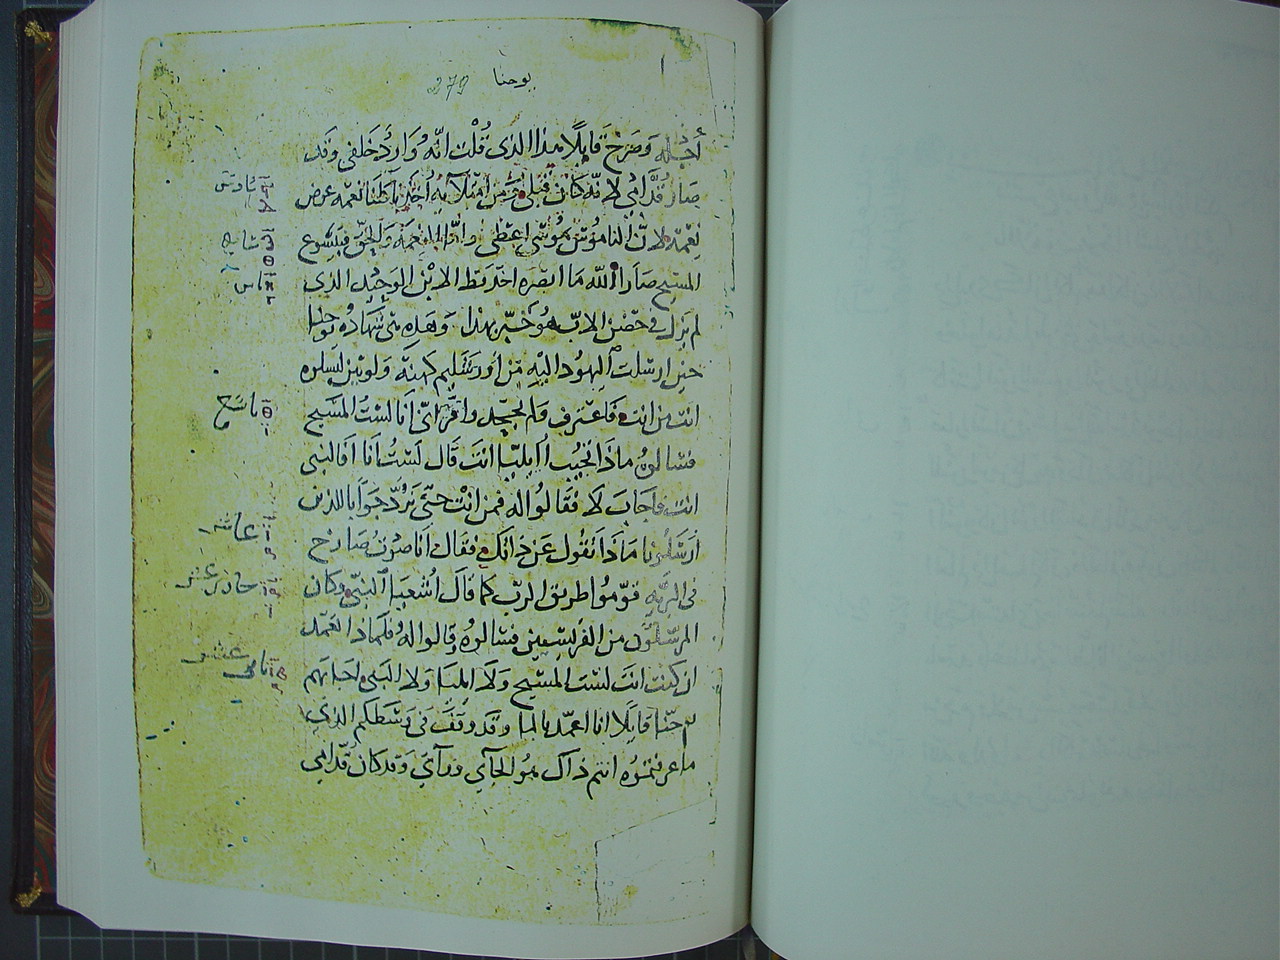 يوحنا 379
أجله وصرخ قايلا هذا الذى قلت انه وارد خلفى وقد
صار قدامى لانه كان قبلى ومن امتلايه أخذنا كلنا نعمه عوض
نعمة لان الناموس بموسى اعطى واما النعمة والحق فبيسوع
المسيح صارا الله ما ابصره احد قط الابن الوحيد الذى
لم يزل فى حضن الاب هو خبر بهذا وهذه هى شهادة يوحنا
حين ارسلت اليهود اليه من أورشليم كهنة ولويين ليسلوه
انت من انت فاعترف ولم يجحد واقر انى أنا لست المسيح
فسالوه ماذا نجيب أايليا انت قال لست أنا افالنبى
انت فاجاب لا فقالوا له فمن انت حتى نرد جوابا للذين
أرسلونا ماذا تقول عن ذاتك فقال أنا صوت صارخ
فى البريه قوموا طريق الرب كما قال اشعيا النبى وكان
المرسلون من الفريسيين فسالوه وقالوا له فلماذا تعمد
ان كنت انت لست المسيح ولا ايليا ولا النبى اجابهم
يوحنا قايلا انا اعمد بالما وقد وقف فى وسطكم الذى
ما عرفتموه انتم ذاك هو الجآى ورآى وقد كان قدامى
سادس
سابع
ثامن
تاسع
عاشر
حادى عشر
ثانى عشر